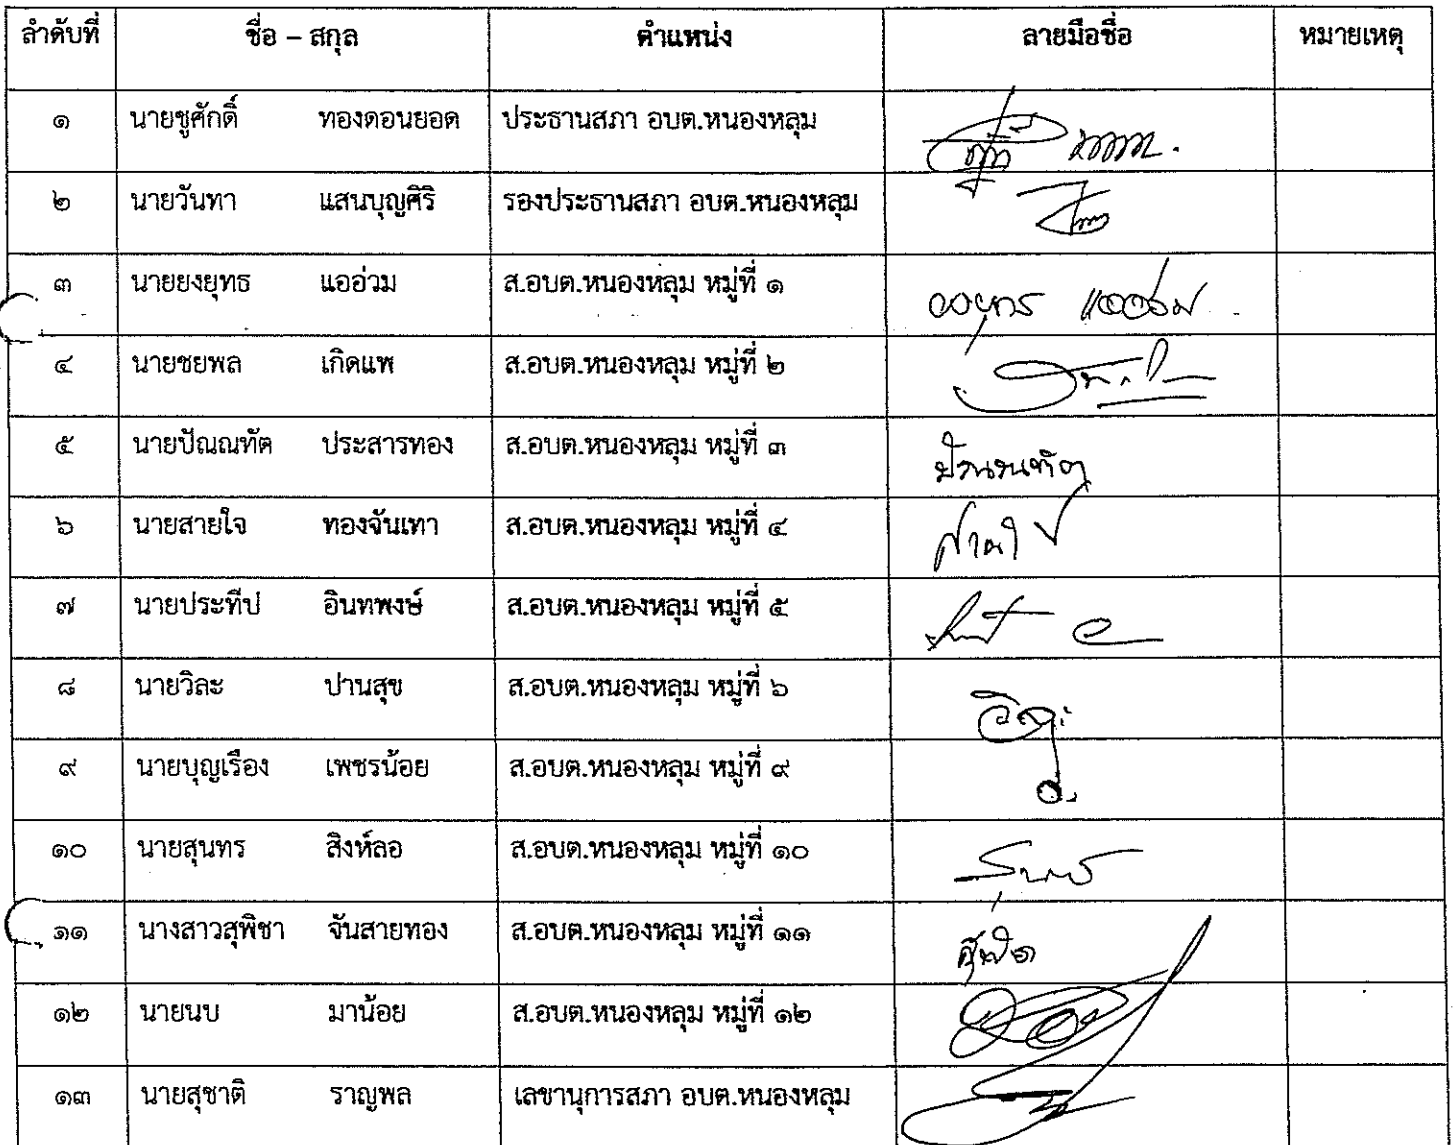 ลำดับที่ ชื่อ – สกุล ตำแหน่ง ลายมือชื่อ หมายเหตุ
๑ นายชูศักดิ์ ทองดอนยอด ประธานสภา อบต.หนองหลุม
๒ นายวันทา แสนบุญศิริ รองประธานสภา อบต.หนองหลุม
๓ นายยงยุทธ แออ่วม ส.อบต.หนองหลุม หมู่ที่ ๑
๔ นายชยพล เกิดแพ ส.อบต.หนองหลุม หมู่ที่ ๒
๕ นายปัณณทัต ประสารทอง ส.อบต.หนองหลุม หมู่ที่ ๓
๖ นายสายใจ ทองจันเทา ส.อบต.หนองหลุม หมู่ที่ ๔
๗ นายประทีป อินทพงษ์ ส.อบต.หนองหลุม หมู่ที่ ๕
๘ นายวิละ ปานสุข ส.อบต.หนองหลุม หมู่ที่ ๖
๙ นายบุญเรือง เพชรน้อย ส.อบต.หนองหลุม หมู่ที่ ๙
๑๐ นายสุนทร สิงห์ลอ ส.อบต.หนองหลุม หมู่ที่ ๑๐
๑๑ นางสาวสุพิชา จันสายทอง ส.อบต.หนองหลุม หมู่ที่ ๑๑
๑๒ นายนบ มาน้อย ส.อบต.หนองหลุม หมู่ที่ ๑๒
๑๓ นายสุชาติ ราญพล เลขานุการสภา อบต.หนองหลุม